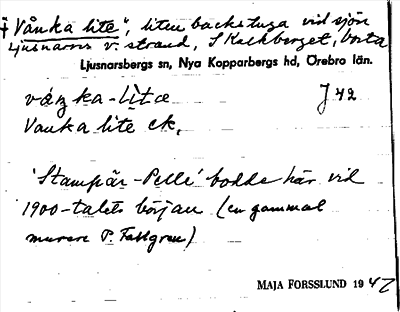 "Vånka lite", liten backstuga vid sjön
Ljusnarns v. strand, S Kalkberget, borta
Ljusnarsbergs sn, Nya Kopparbergs hd, Örebro län.
J 42
Vanka lite ek.
'Stampär-Pelle' bodde här vid
1900-talets början (en gammal
murare P. Fallgren)
MAJA FORSSLUND 1942